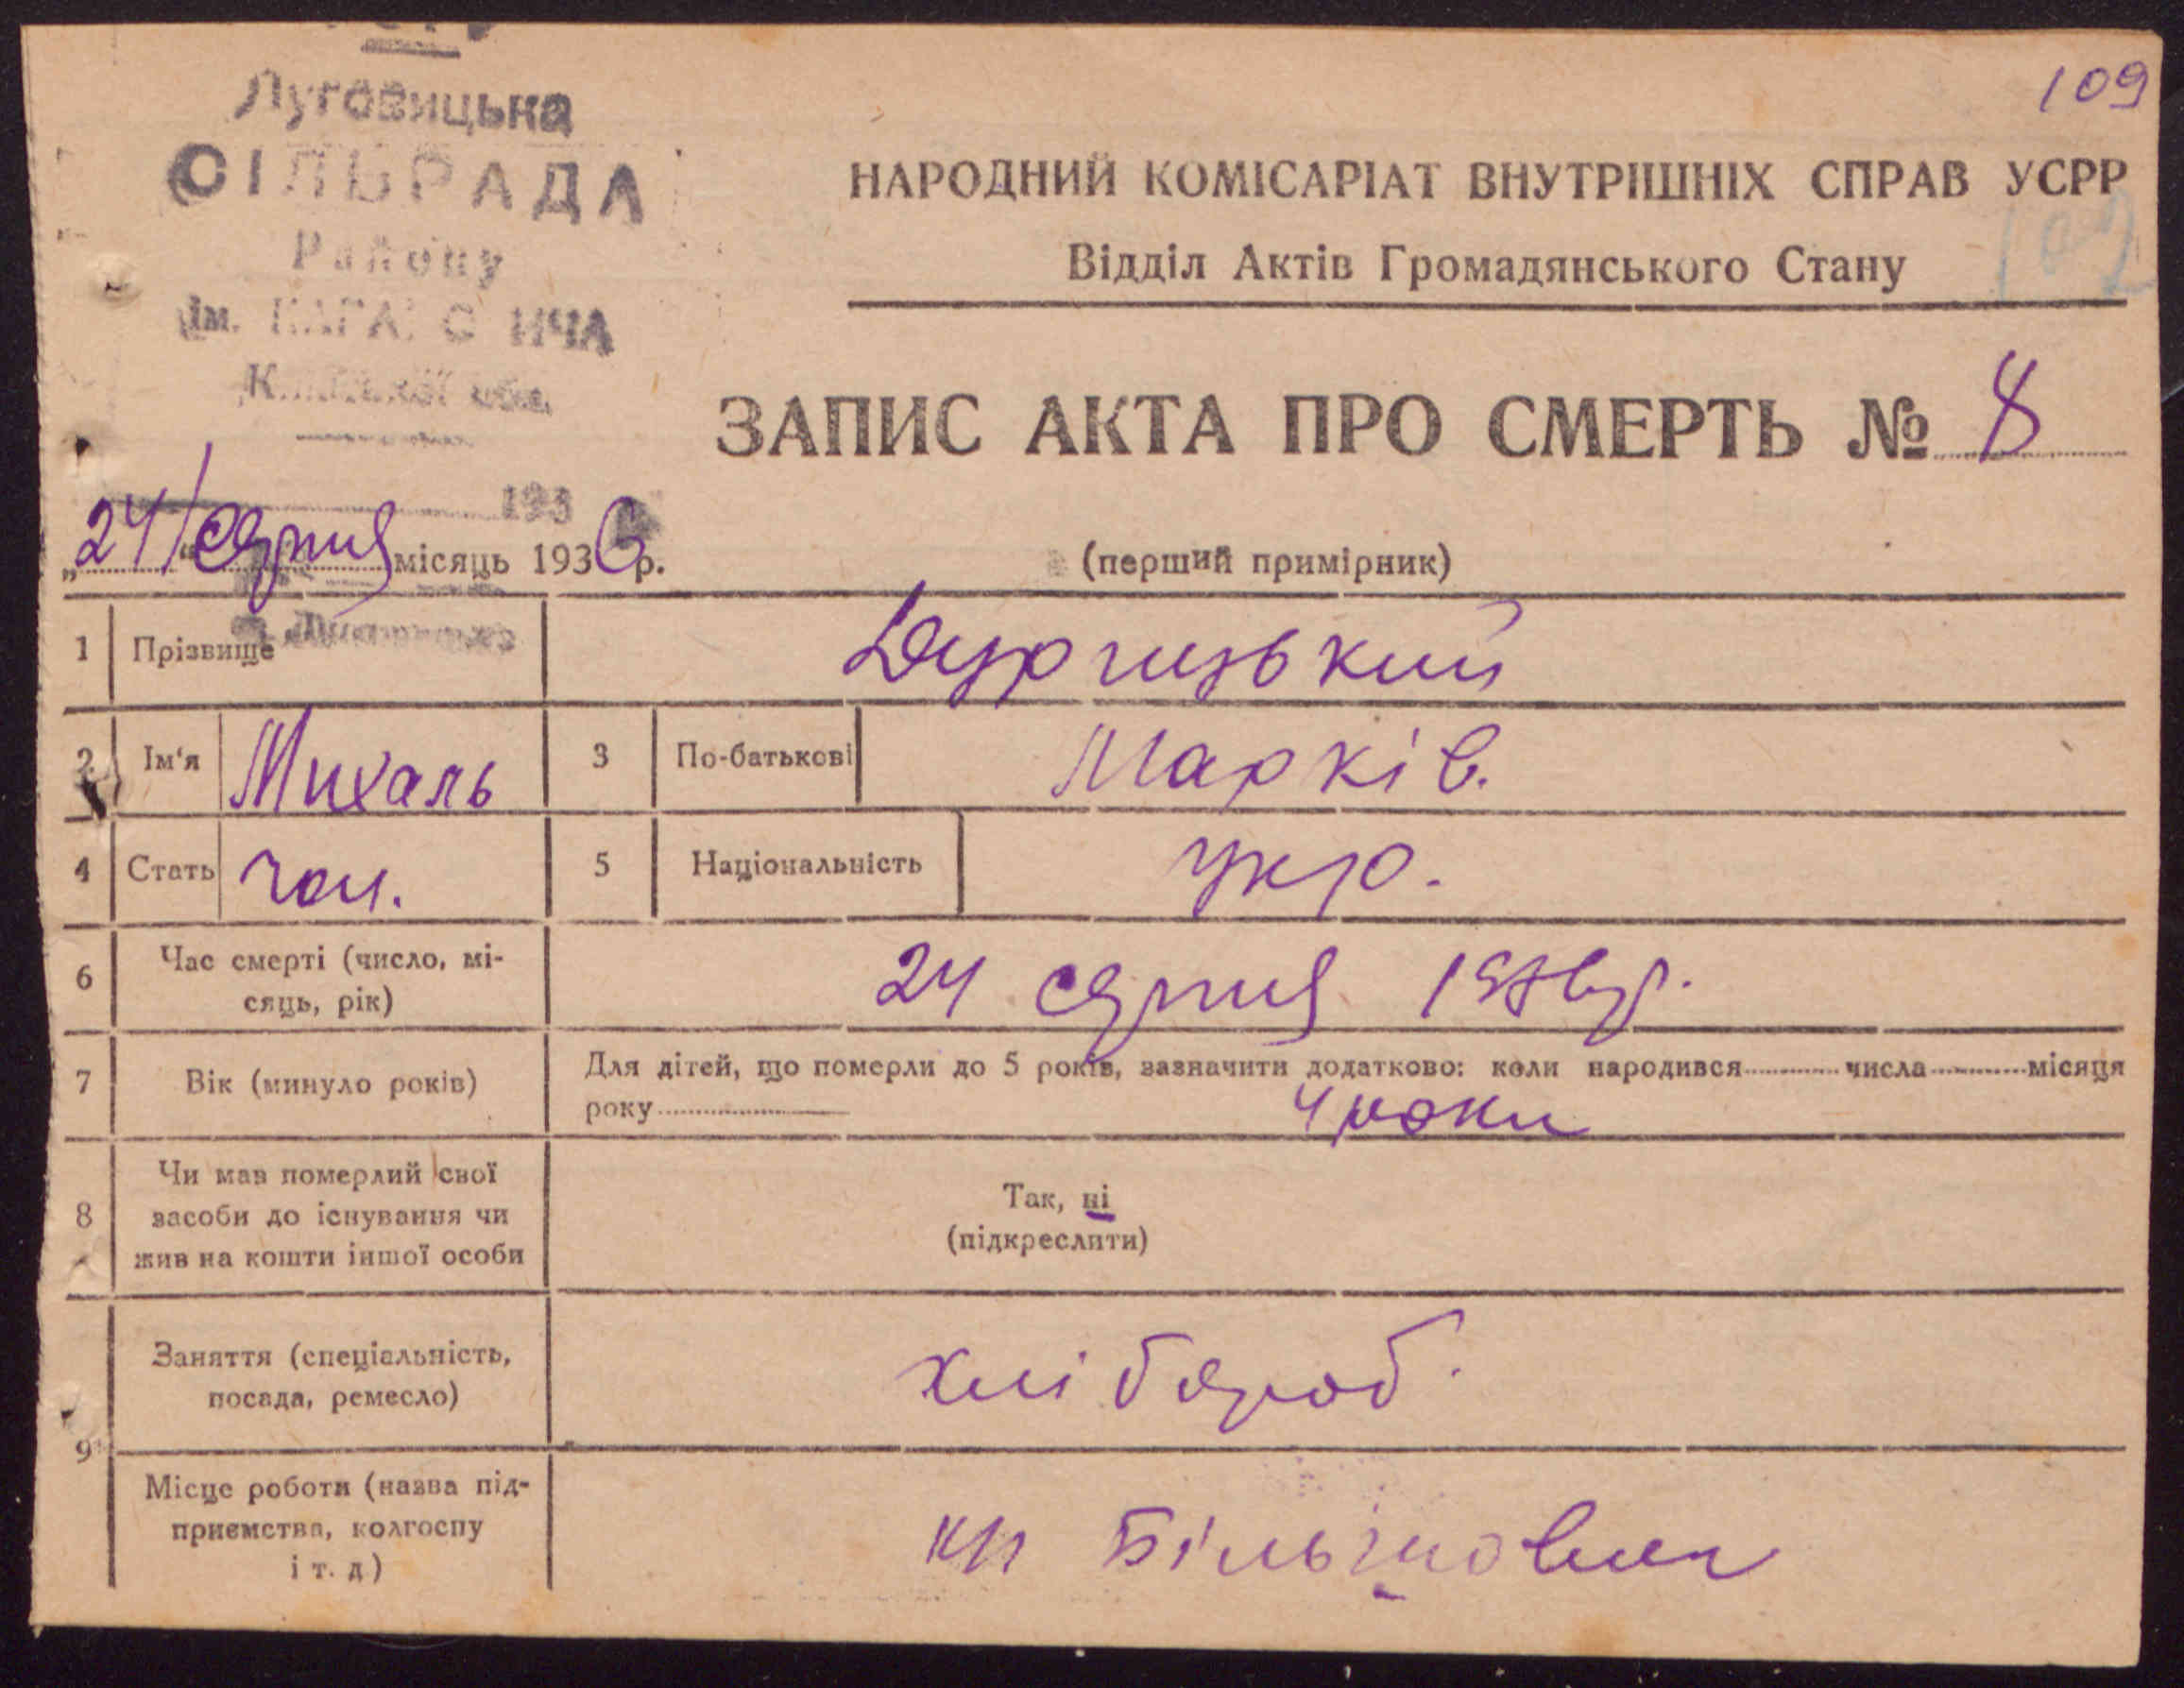 Луговицька
СІЛЬРАДА
Району
ім. КАГАНОВИЧА
Київської обл.
109
НАРОДНИЙ КОМІСАРІАТ ВНУТРІШНІХ СПРАВ УСРР
Відділ Актів Громадянського Стану
102
ЗАПИС АКТА ПРО СМЕРТЬ № 8
193
„24" серпня місяць 1936 р.
(перший примірник)
1 Прізвище Дургицький
2 Ім'я Михаль 3 По-батькові Марків.
4 Стать чол. 5 Національність укр.
6 Час смерті (число, мі-
сяць, рік) 24 серпня 1936 р.
7 Вік (минуло років) Для дітей, що померли до 5 років, зазначити додатково: коли народився числа місяця
року 4 роки
8 Чи мав померлий свої
засоби до існування чи
жив на кошти іншої особи
Так, ні
(підкреслити)
9 Заняття (спеціальність,
посада, ремесло) хлібороб.
Місце роботи (назва під-
приємства, колгоспу
і т. д) кп Більшовик